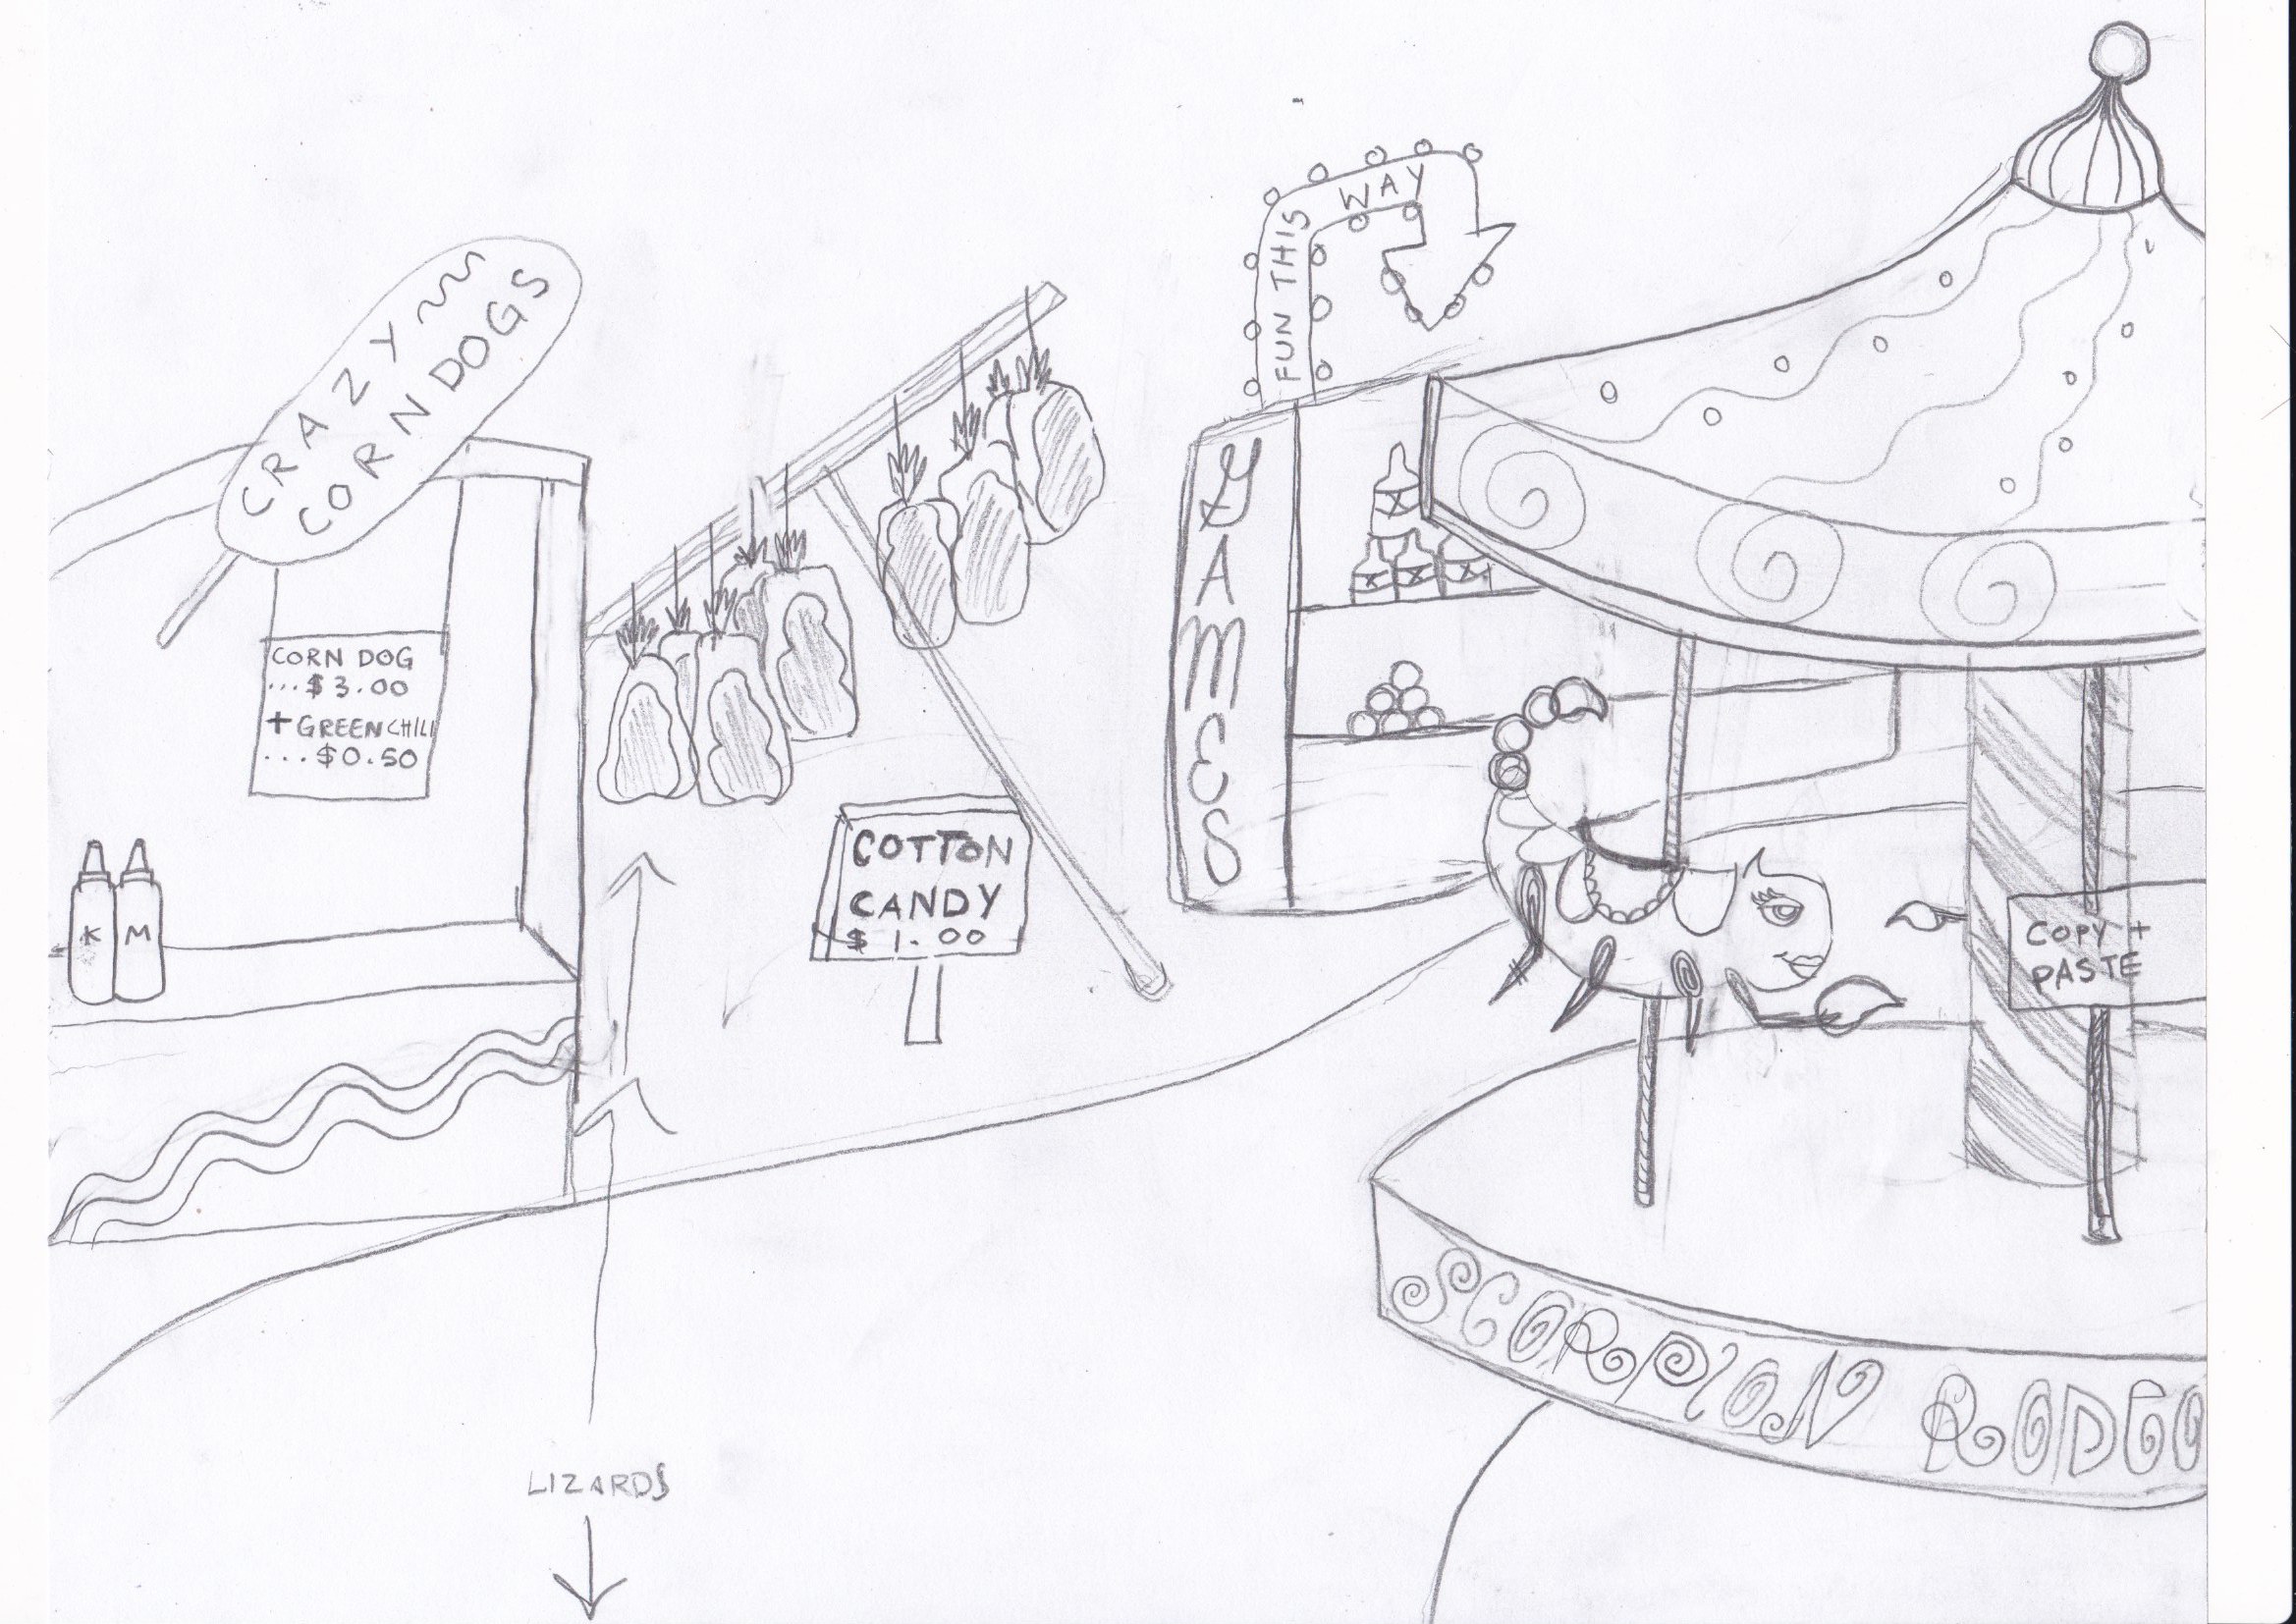 CRAZY
CORN DOGS
CORN DOG
...$3.00
+GREEN CHILI
...$0.50
K M
COTTON
CANDY
$1.00
FUN THIS WAY
GAMES
COPY +
PASTE
SCORPION RODEO
LIZARDS